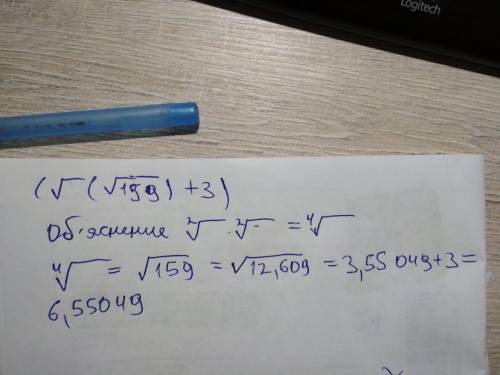 Logitech
(√ (√159) + 3)
Объяснение ²√ · ²√ = ⁴√
⁴√ = √159 = √12,609 = 3,55049+3=
6,55049